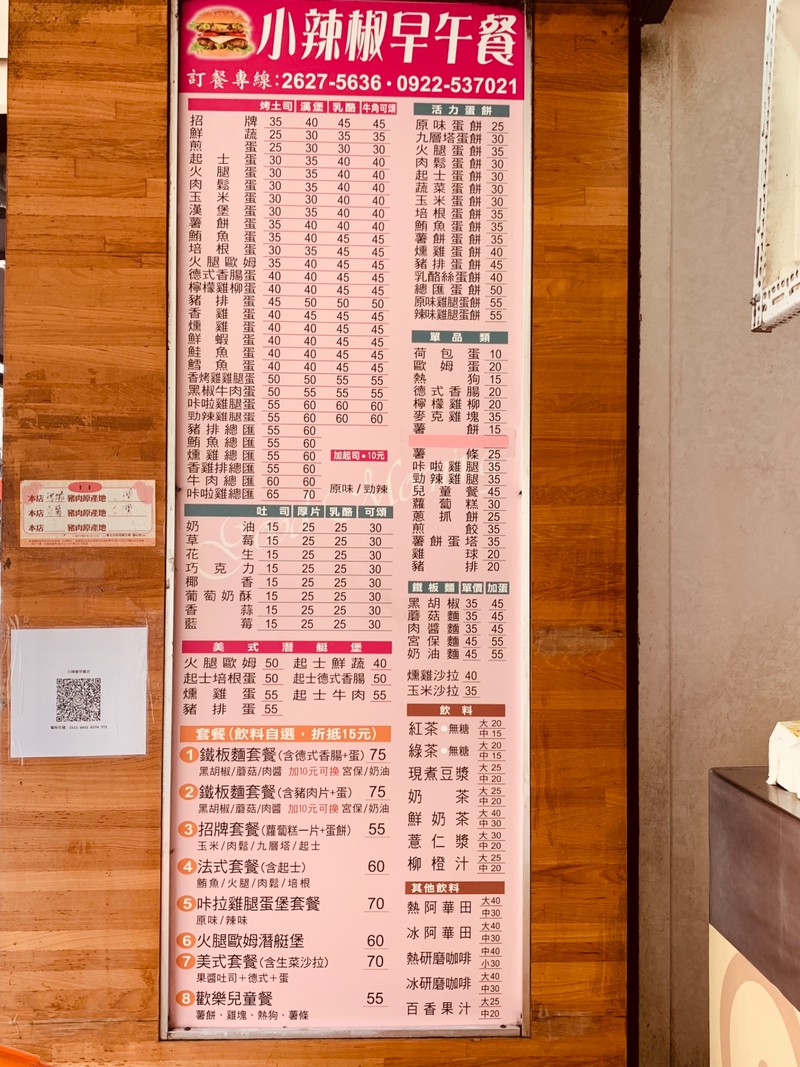 小辣椒早午餐
訂餐專線:2627-5636・0922-537021
烤土司 漢堡 乳酪 牛角可頌
招牌 35 40 45 45
鮮蔬 25 30 35 35
煎蛋 25 30 30 30
起士蛋 30 35 40 40
火腿蛋 30 35 40 40
肉鬆蛋 30 35 40 40
玉米蛋 30 30 40 40
漢堡蛋 30 35 40 40
薯餅蛋 30 35 40 40
鮪魚蛋 35 40 45 45
培根蛋 30 35 45 45
火腿歐姆 35 40 45 45
德式香腸蛋 40 40 45 45
檸檬雞柳蛋 40 40 45 45
豬排蛋 45 50 50 50
香雞蛋 40 45 45 45
燻雞蛋 40 40 45 45
鮮蝦蛋 40 40 45 45
鮭魚蛋 40 40 45 45
鱈魚蛋 40 40 45 45
香烤雞雞腿蛋 50 50 55 55
黑椒牛肉蛋 50 55 55 55
咔啦雞腿蛋 55 60 60 60
勁辣雞腿蛋 55 60 60 60
豬排總匯 55 60
鮪魚總匯 55 60
燻雞總匯 55 60
香雞排總匯 55 60
牛肉總匯 60 60
咔啦雞總匯 65 70
加起司・10元
原味/勁辣
吐司 厚片 乳酪 可頌
奶油 15 25 25 30
草莓 15 25 25 30
花生 15 25 25 30
巧克力 15 25 25 30
椰香 15 25 25 30
葡萄奶酥 15 25 25 30
香蒜 15 25 25 30
藍莓 15 25 25 30
美式潛艇堡
火腿歐姆 50 起士鮮蔬 40
起士培根蛋 50 起士德式香腸 50
燻雞蛋 55 起士牛肉 55
豬排蛋 55
套餐(飲料自選，折抵15元)
1 鐵板麵套餐(含德式香腸+蛋) 75
黑胡椒/蘑菇/肉醬 加10元可換 宮保/奶油
2 鐵板麵套餐(含豬肉片+蛋) 75
黑胡椒/蘑菇/肉醬 加10元可換 宮保/奶油
3 招牌套餐(蘿蔔糕一片+蛋餅) 55
玉米/肉鬆/九層塔/起士
4 法式套餐(含起士) 60
鮪魚/火腿/肉鬆/培根
5 咔拉雞腿蛋堡套餐 70
原味/辣味
6 火腿歐姆潛艇堡 60
7 美式套餐(含生菜沙拉) 70
果醬吐司+德式+蛋
8 歡樂兒童餐 55
薯餅、雞塊、熱狗、薯條
活力蛋餅
原味蛋餅 25
九層塔蛋餅 30
火腿蛋餅 30
肉鬆蛋餅 30
起士蛋餅 30
蔬菜蛋餅 30
玉米蛋餅 30
培根蛋餅 35
鮪魚蛋餅 35
薯餅蛋餅 35
燻雞蛋餅 40
豬排蛋餅 45
乳酪絲蛋餅 40
總匯蛋餅 50
原味雞腿蛋餅 55
辣味雞腿蛋餅 55
單品類
荷包蛋 10
歐姆蛋 20
熱狗 15
德式香腸 20
檸檬雞柳 20
麥克雞塊 35
薯餅 15
薯條 25
咔啦雞腿 35
勁辣雞腿 35
兒童餐 45
蘿蔔糕 30
蔥抓餅 25
煎餃 35
薯餅蛋塔 35
雞球 20
豬排 20
鐵板麵 單價 加蛋
黑胡椒 35 45
蘑菇麵 35 45
肉醬麵 35 45
宮保麵 45 55
奶油麵 45 55
燻雞沙拉 40
玉米沙拉 35
飲料
紅茶・無糖 大20 中15
綠茶・無糖 大20 中15
現煮豆漿 大25 中20
奶茶 大25 中20
鮮奶茶 大40 中30
薏仁漿 大30 中20
柳橙汁 大25 中20
其他飲料
熱阿華田 大40 中30
冰阿華田 大40 中30
熱研磨咖啡 中40 小30
冰研磨咖啡 大40 中30
百香果汁 大25 中20
本店 豬肉原產地
本店 豬肉原產地
本店 豬肉原產地
小辣椒早餐店